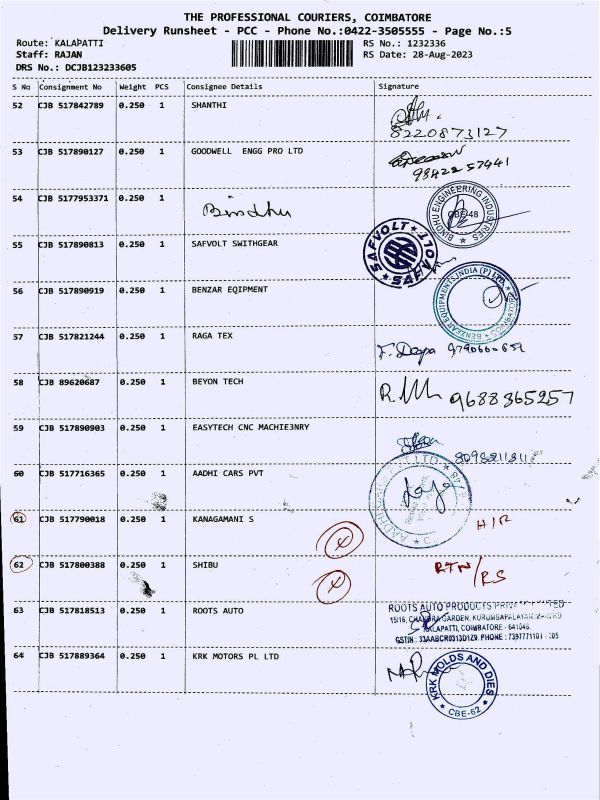 THE PROFESSIONAL COURIERS, COIMBATORE
Delivery Runsheet - PCC - Phone No.:0422-3505555 - Page No.:5
Route: KALAPATTI RS No.: 1232336
Staff: RAJAN RS Date: 28-Aug-2023
DRS No.: DCJB123233605
S No Consignment No Weight PCS Consignee Details Signature
52 CJB 517842789 0.250 1 SHANTHI
8220873127
53 CJB 517890127 0.250 1 GOODWELL ENGG PRO LTD
98422 57441
54 CJB 5177953371 0.250 1 Bindhu
BINDHU ENGINEERING INDUSTRIES
CBE-48
55 CJB 517890813 0.250 1 SAFVOLT SWITHGEAR
SAFVOLT SAFVOLT
56 CJB 517890919 0.250 1 BENZAR EQIPMENT
BENZAAR EQUIPMENTS INDIA (P) LTD.
57 CJB 517821244 0.250 1 RAGA TEX
58 CJB 89620687 0.250 1 BEYON TECH
9688365257
59 CJB 517890903 0.250 1 EASYTECH CNC MACHIE3NRY
60 CJB 517716365 0.250 1 AADHI CARS PVT
61 CJB 517790018 0.250 1 KANAGAMANI S
62 CJB 517800388 0.250 1 SHIBU RTN/RS
63 CJB 517818513 0.250 1 ROOTS AUTO
ROOTS AUTO PRODUCTS PRIVATE LIMITED
GARDEN, KURUMBAPALAYAM
KALAPATTI, COIMBATORE - 641048.
GSTIN : 33AABCR0313D1Z9. PHONE : 7397771101 - 105
64 CJB 517889364 0.250 1 KRK MOTORS PL LTD
KRK MOLDS AND DIES
CBE-62